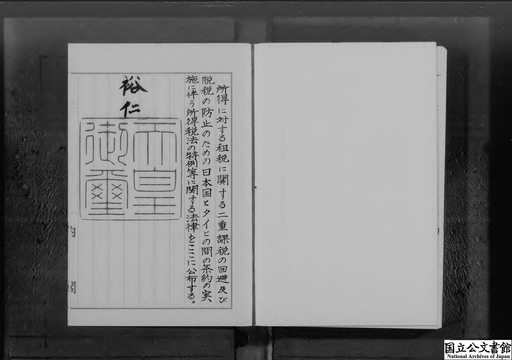 所得に対する租税に関する二重課税の回避及び
脱税の防止のための日本国とタイとの間の条約の実
施に伴う所得税法の特例等に関する法律をここに公布する。
裕仁
天皇
御璽
内
閣
国立公文書館
National Archives of Japan